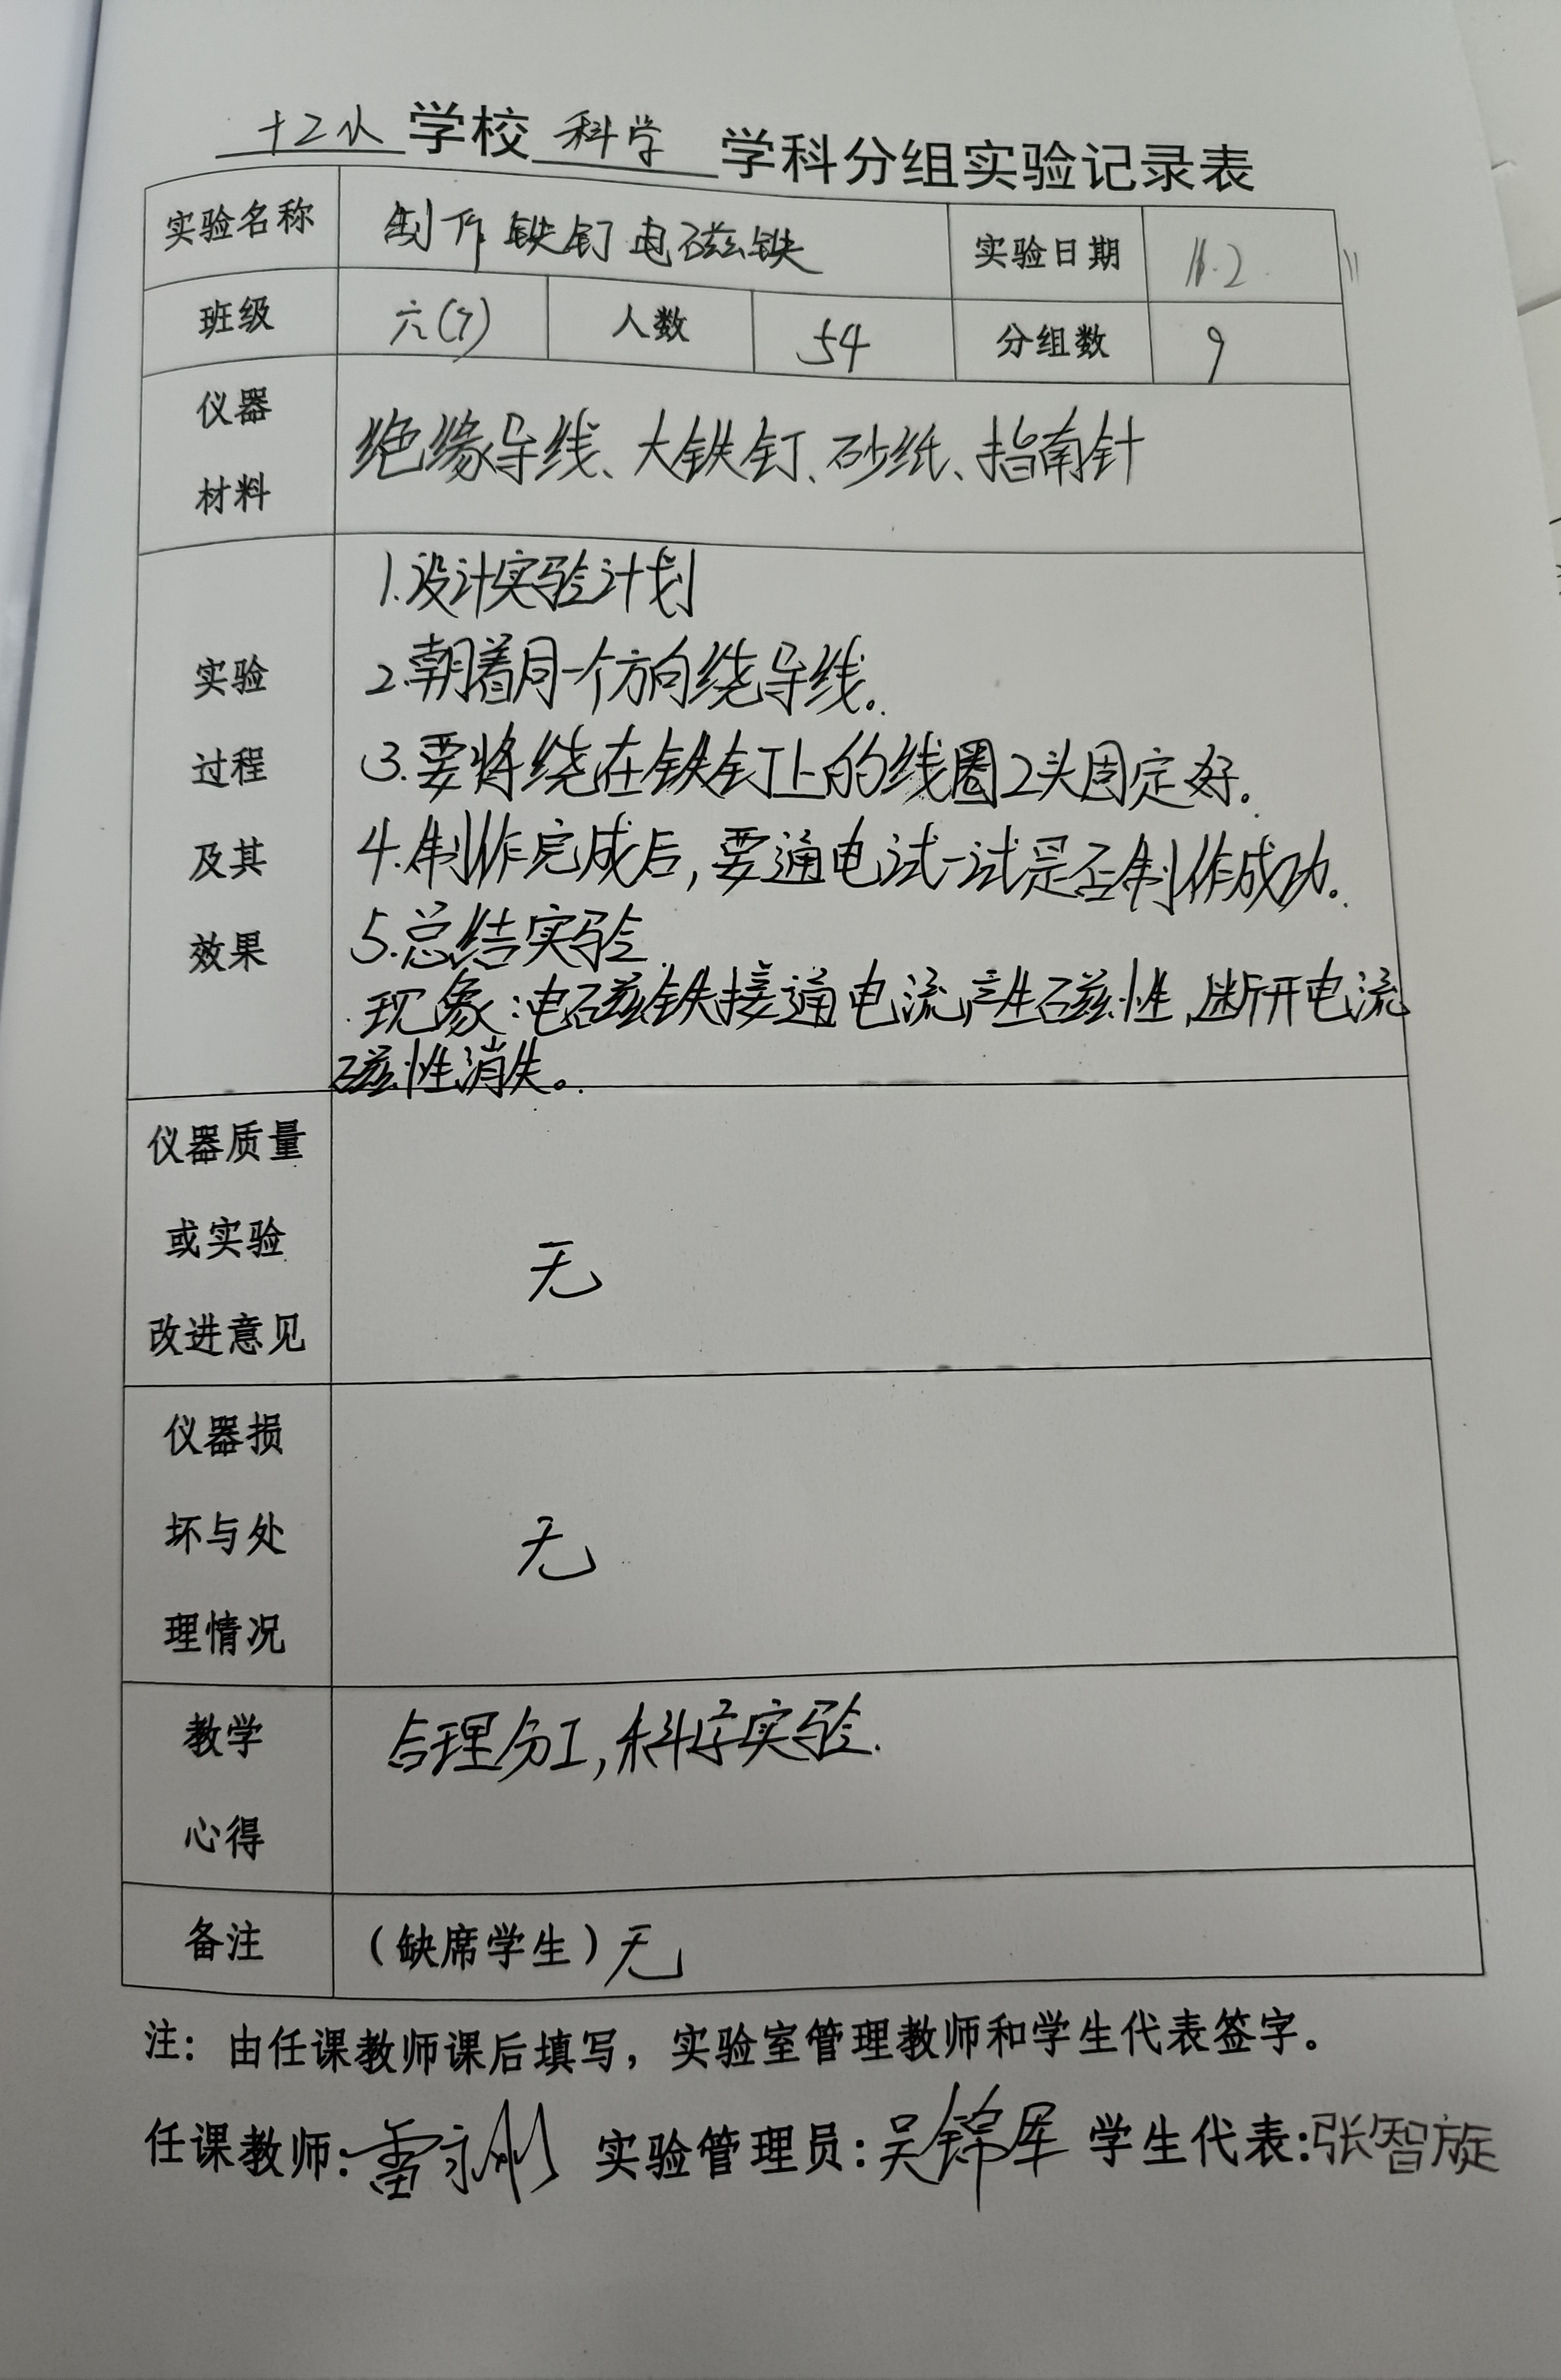 十二小学校 科学 学科分组实验记录表
实验名称 制作铁钉电磁铁 实验日期 11.2
班级 六(7) 人数 54 分组数 9
仪器
材料
绝缘导线、大铁钉、砂纸、指南针
实验
过程
及其
效果
1.设计实验计划
2.朝着同一个方向绕导线。
3.要将绕在铁钉上的线圈2头固定好.
4.制作完成后,要通电试一试是否制作成功.
5.总结实验.
现象:电磁铁接通电流产生磁性,断开电流
磁性消失。
仪器质量
或实验
改进意见
无
仪器损
坏与处
理情况
无
教学
心得
合理分工,科学实验.
备注 (缺席学生)无
注：由任课教师课后填写，实验室管理教师和学生代表签字。
任课教师: 雷 实验管理员:吴锦军 学生代表:张智旋